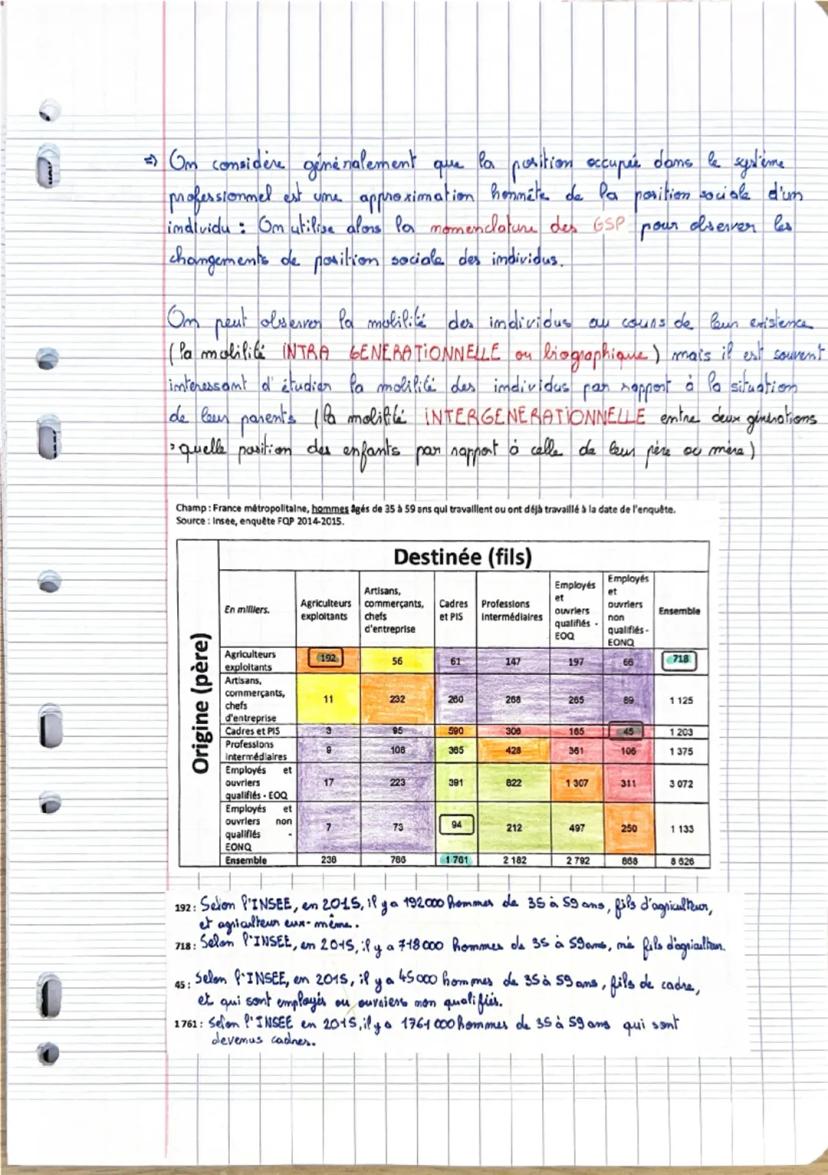 =) On considère généralement que la position occupée dans le système
professionnel est une approximation honnête de la position sociale d'un
individu : On utilise alors la nomenclature des GSP pour observer les
changements de position sociale des individus.
On peut observer la mobilité des individus au cours de leur existence
(la mobilité INTRA GENERATIONNELLE ou biographique) mais il est souvent
interessant d'étudier la mobilité des individus par rapport à la situation
de leur parents (la mobilité INTERGENERATIONNELLE entre deux générations
: quelle position des enfants par rapport à celle de leur père ou mère)
Champ : France métropolitaine, hommes âgés de 35 à 59 ans qui travaillent ou ont déjà travaillé à la date de l'enquête.
Source : Insee, enquête FQP 2014-2015.
Origine (père)
Destinée (fils)
En milliers. Agriculteurs exploitants Artisans, commerçants, chefs d'entreprise Cadres et PIS Professions Intermédiaires Employés et ouvriers qualifiés - EOQ Employés et ouvriers non qualifiés - EONQ Ensemble
Agriculteurs exploitants 192 56 61 147 197 66 718
Artisans, commerçants, chefs d'entreprise 11 232 260 268 265 89 1 125
Cadres et PIS 3 95 590 306 165 45 1 203
Professions intermédiaires 9 106 365 428 361 106 1 375
Employés et ouvriers qualifiés - EOQ 17 223 391 822 1 307 311 3 072
Employés et ouvriers non qualifiés - EONQ 7 73 94 212 497 250 1 133
Ensemble 238 786 1 761 2 182 2 792 868 8 626
192 : Selon l'INSEE, en 2015, il y a 192000 hommes de 35 à 59 ans, fils d'agriculteur,
et agriculteur eux-même.
718 : Selon l'INSEE, en 2015, il y a 718 000 hommes de 35 à 59 ans, né fils d'agriculteur.
45 : Selon l'INSEE, en 2015, il y a 45000 hommes de 35 à 59 ans, fils de cadre,
et qui sont employés ou ouvriers non qualifiés.
1 761 : Selon l'INSEE en 2015, il y a 1761 000 hommes de 35 à 59 ans qui sont
devenus cadres.